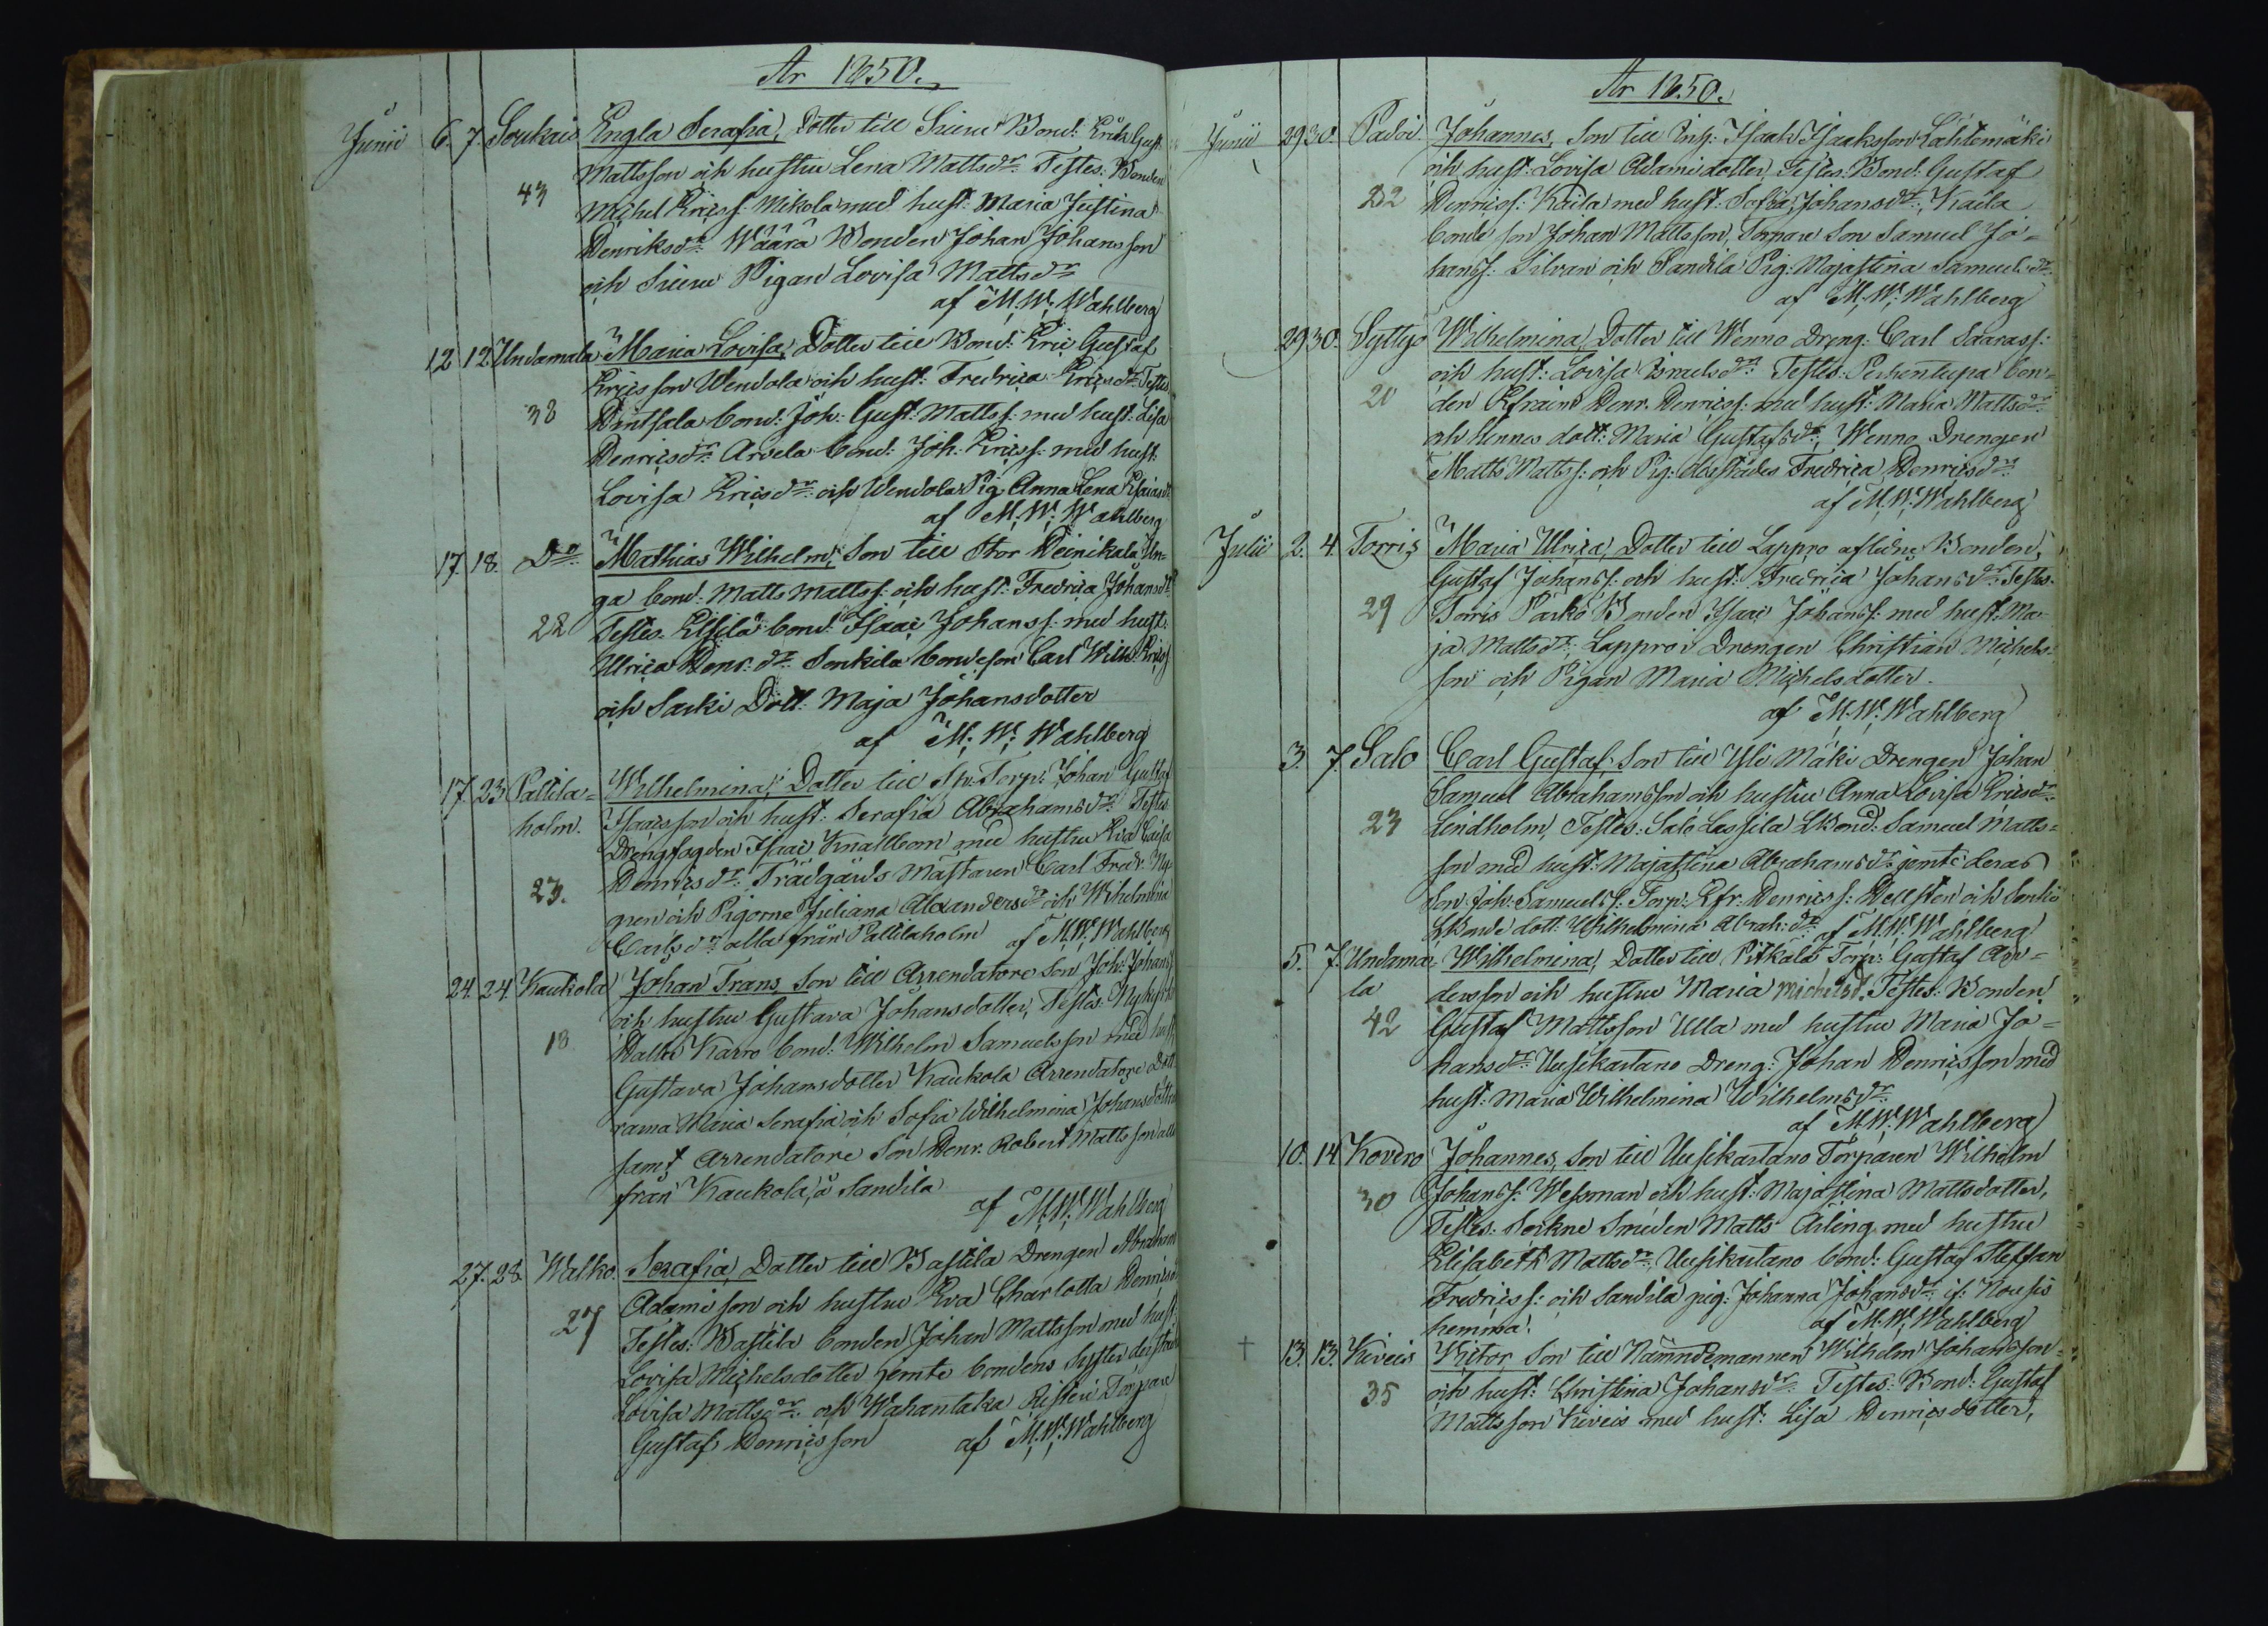 År 1850.
Junii 6. 7. Soukais Engla Serafia, Dotter till Bond: Erik Gust.
Mattsson och hustru Lena Mattsdr. Testes: Bonden
43 Michel Ericss: Mikola med hust: Maria Justina
Henriksdr. Wäärä Bonden Johan Johansson
och Pigan Lovisa Mattsdr
af M: W: Wahlberg
12 12 Undamala Maria Lovisa, Dotter till Bond: Eric Gustaf
Ericsson Wendola och hust: Fredrica Ericsdr. Testes
38 Hintsala bond: Joh: Gust: Mattss: med hust: Lisa
Henricsdr. Arvela bond: Joh. Ericss: med hust.
Lovisa Ericsdr. och Wendola Pig. Anna Lena Esaiasdr
af M: W: Wahlberg
17. 18. Do Mathias Wilhelm, Son till Stor Heinikala Un=
ga bond: Matts Mattss: och hust: Fredrica Johansdr.
28 Testes. bond: Isaac Johanss: med hust.
Ulrica Henr: dr. Sonkila bondeson Carl Wilh: Ericss
och Sarki Dott: Maja Johansdotter
af M: W: Wahlberg
17. 23 Paltila= Wilhelmina, Dotter till Torp: Johan Gustaf
holm. Isaacsson och hust: Serafia Abrahamsdr. Testes
Drengfogden Isaac Knallbom med hustru Eva Caisa
23. Henricsdr. Trädgårds Mästaren Carl Fredr: Ny=
gren och Pigorne Juliana Alexandersdr och Wilhelmina
Carlsdr alla från Paltilaholm af M: W: Wahlberg
24. 24 Kaukola Johan Frans, Son till Arrendatore Son Joh: Johanss
och hustru Gustava Johansdotter, Testes: Nykyrko
18 Karro bond: Wilhelm Samuelsson med hust
Gustava Johansdotter Kaukola Arrendatore Dött=
rarna Maria Serafia och Sofia Wilhelmina Johansdöttrar
samt Arrendatore Son Henr. Robert Mattsson alla
från Kaukola, å Sandila
af M: W: Wahlberg
27. 28. Walko. Serafia, Dotter till Wastila Drengen Abraham
27 Adamsson och hustru Eva Charlotta Henricsdr
Testes: Wastila bonden Johan Mattsson med hust:
Lovisa Michelsdotter jemte bondens syster
Lovisa Mattsdr. och Wahantaka Risteri Torpare
Gustaf Henricsson af M: W: Wahlberg
År 1850.
Junii 29 30. Padoi. Johannes, Son till Inh: Isaak Isaaksson Lähtemäki
och hust: Lovisa Adamsdotter, Testes: Bond: Gustaf
22 Henricss: Kaila med hust: Sofia Johansdr., Kaila
bonde son Johan Mattsson, Torpare Son Samuel Jo=
hanss: Silvan och Sandila Pig: Majastina Samuelsdr.
af M: W: Wahlberg
29 30. Syttyö Wilhelmina, Dotter till Wenno Dreng: Carl Saarass:
och hust: Lovisa Israelsdr. Testes: Perhentupa bon=
20 den Efraim Henr. Henricss: med hust: Maria Mattsdr
och hennes dott: Maria Gustafsdr, Wenno Drengen
Matts Mattss: och Pig: Fredrica Henricsdr
af M: W: Wahlberg
Julii 2. 4. Torris Maria Ulrica, Dotter till Lappro aflidne Bonden,
Gustaf Johanss: och hust: Fredrica Johansdr. Testes.
29 Torris Parko Bonden Isaac Johanss: med hust: Ma=
ja Mattsdr. Lapproi Drengen Christian Michels=
son och Pigan Maria Michelsdotter.
af M: W: Wahlberg
3. 7. Salo Carl Gustaf, Son till Yli Mäki Drengen Johan
Samuel Abrahamsson och hustru Anna Lovisa Ericsdr.
23 Lindholm, Testes: Salo Lassila Bond: Samuel Matts=
son med hust: Majastina Abrahamsdr. jemte deras
son Joh: Samuelss: Torp: Efr: Henricss: Hellsten och
Bonde dott: Wilhelmina Abrah: dr. af M: W: Wahlberg
5. 7. Undama= Wilhelmina, Dotter till Pitkälä Torp: Gustaf An=
la dersson och hustru Maria Michelsd. Testes: Bonden
42 Gustaf Mattsson Ulla med hustru Maria Jo=
hansdr. Uusikartano Dreng: Johan Henricsson med
hust: Maria Wilhelmina Wilhelmsdr
af M: W: Wahlberg
10. 14 Kovero Johannes, Son till Uusikartano Torparen Wilhelm
30 Johanss: Wesoman och hust: Majastina Mattsdotter,
Testes: Smeden Matts Arling med hustru
Elisabeth Mattsdr. Uusikartano bond: Gustaf Steffan
Fredricss: och Sandila pig: Johanna Johansdr. if: Nousis
hemma. af M: W: Wahlberg
† 13. 13. Kiveis Victor, Son till Nämndemannen Wilhelm Johansson=
35 och hust: Christina Johansdr. Testes: Bond: Gustaf
Mattsson Kiveis med hust: Lisa Henricsdotter,